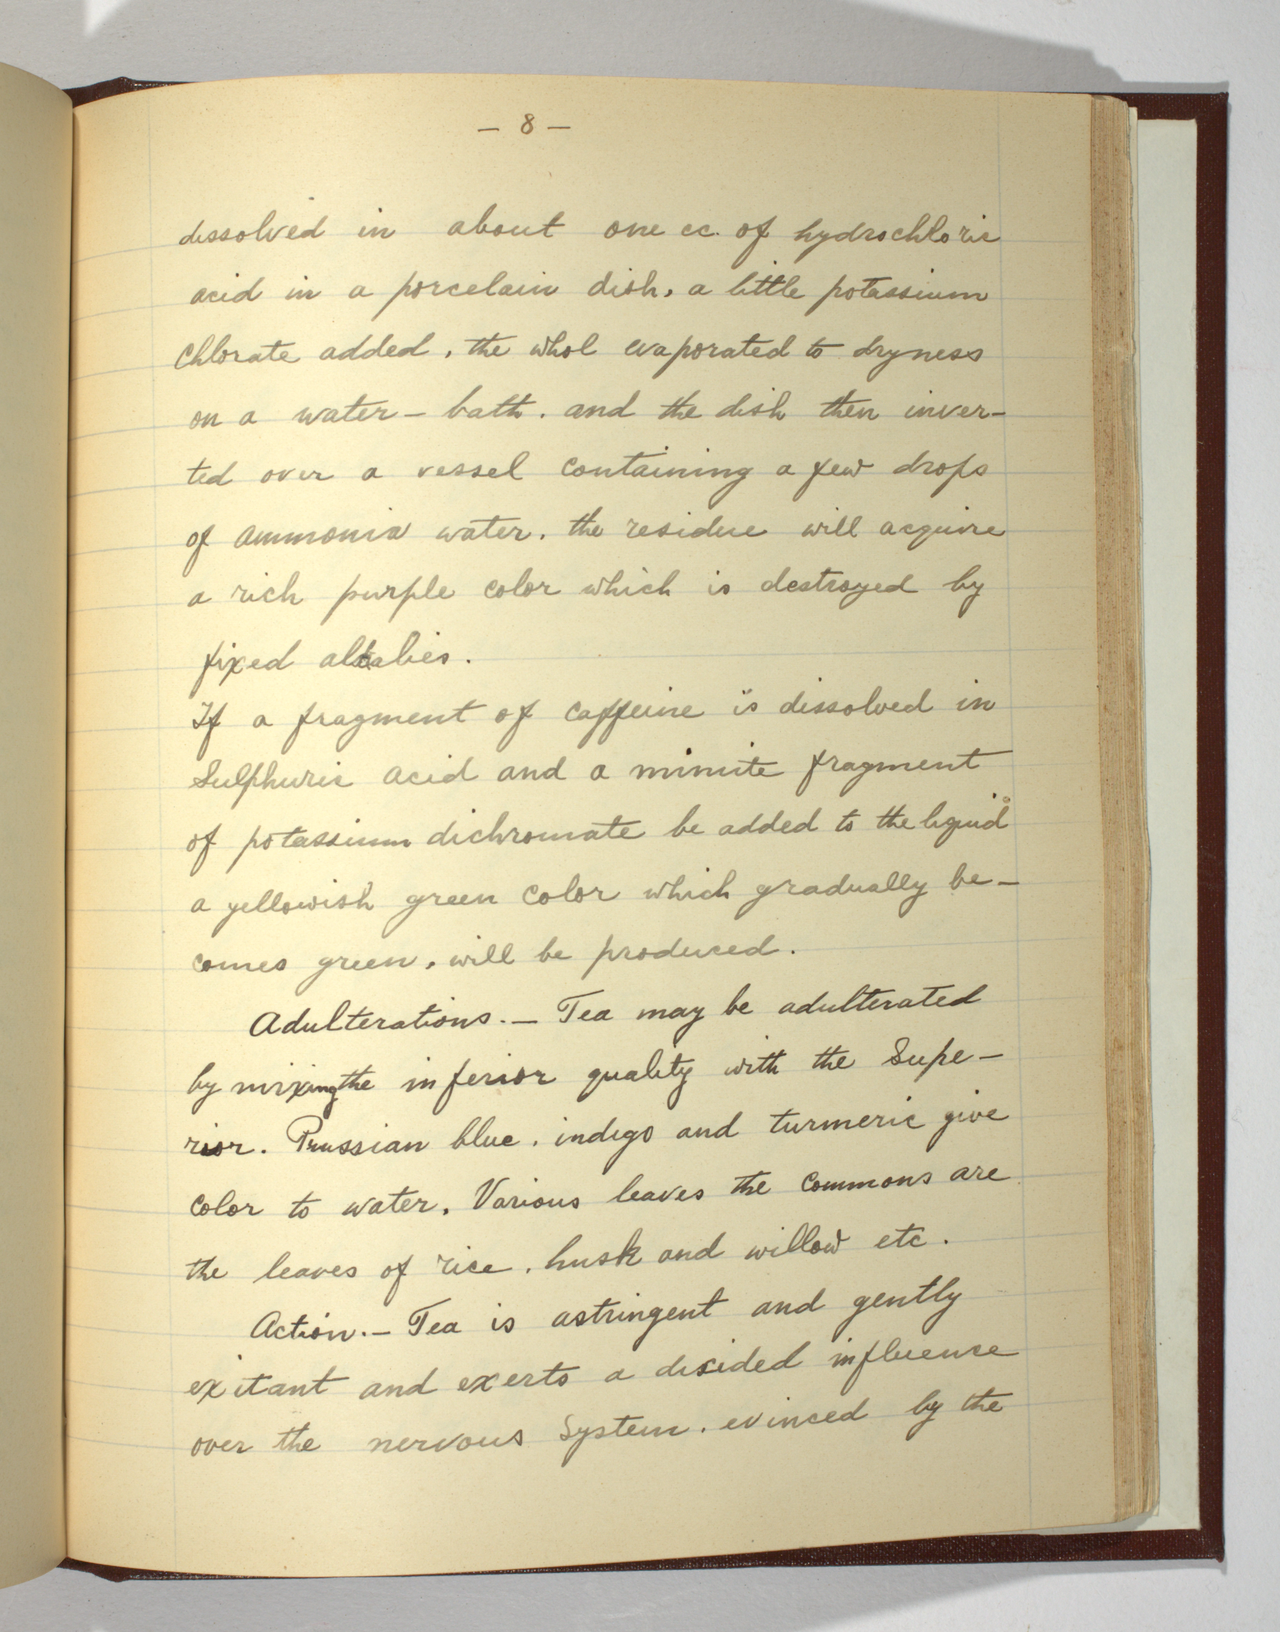 — 8 —
dissolved in about one cc. of hydrochloric
acid in a porcelain dish, a little potassium
Chlorate added, the whol evaporated to dryness
on a water-bath, and the dish then inver-
ted over a vessel containing a few drops
of ammonia water, the residue will acquire
a rich purple color which is destroyed by
fixed alkalies.
If a fragment of caffeine is dissolved in
Sulphuric acid and a minute fragment
of potassium dichromate be added to the liquid
a yellowish green color which gradually be-
comes green, will be produced.
Adulterations.— Tea may be adulterated
by mixing the inferior quality with the Supe-
rior. Prussian blue, indigo and turmeric give
color to water. Various leaves the commons are
the leaves of rice, husk and willow etc.
Action.— Tea is astringent and gently
exitant and exerts a disided influence
over the nervous System, evinced by the